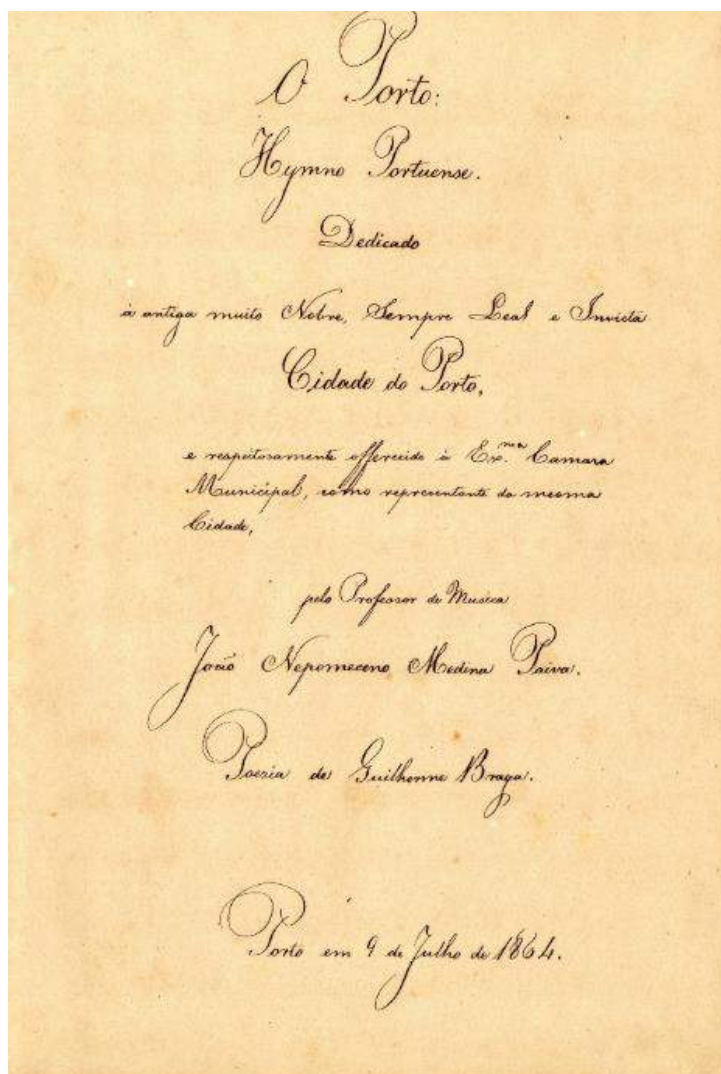 O Porto:
Hymno Portuense.
Dedicado
à antiga muito Nobre, Sempre Leal e Invicta
Cidade do Porto,
e respeitosamente offerecido à Ex.ma Camara
Municipal, como representante da mesma
Cidade,
pelo Professor de Musica
João Nepomeceno Medina Paiva.
Poesia de Guilherme Braga.
Porto em 9 de Julho de 1864.